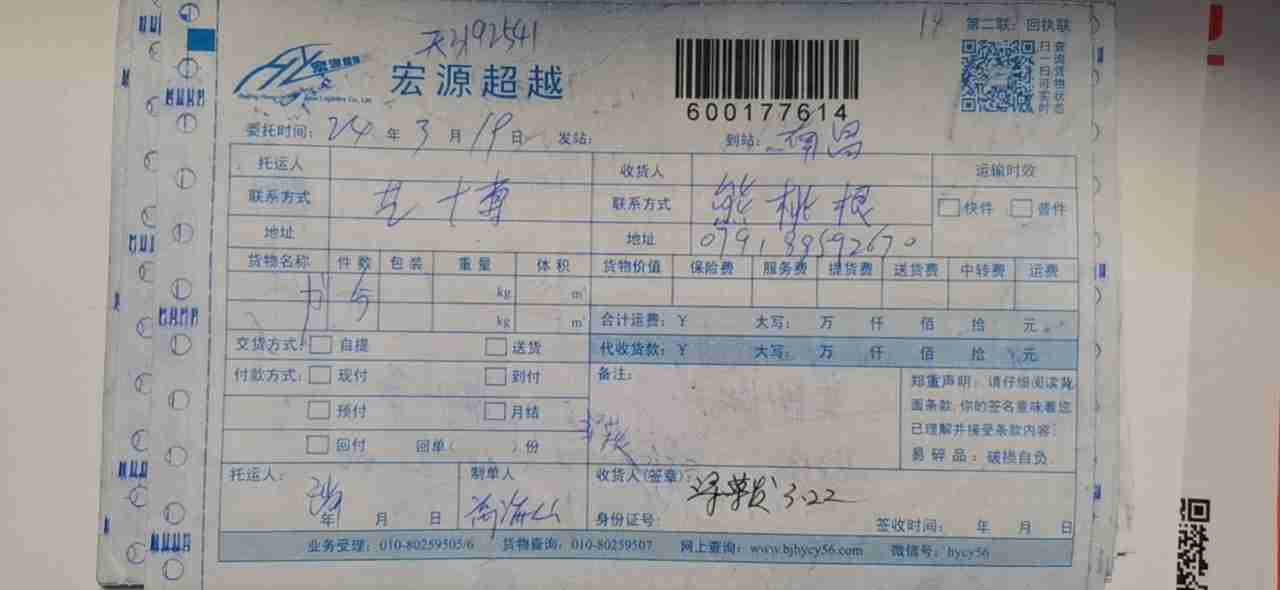 第二联：回执联
宏源超越
600177614
扫一扫可实时
查询货物状态
委托时间：24 年 3 月 19 日 发站： 到站：南昌
托运人 收货人 运输时效
联系方式 联系方式 熊桃根 快件 普件
地址 地址 0791 89592670
货物名称 件数 包装 重量 体积 货物价值 保险费 服务费 提货费 送货费 中转费 运费
kg m³
kg m³ 合计运费：¥ 大写： 万 仟 佰 拾 元
交货方式： 自提 送货 代收货款：¥ 大写： 万 仟 佰 拾 元
付款方式： 现付 到付 备注： 郑重声明：请仔细阅读背
预付 月结 面条款，你的签名意味着您
已理解并接受条款内容；
回付 回单（ ）份 易碎品：破损自负。
托运人： 制单人 收货人（签章）： 3.22
年 月 日 身份证号： 签收时间： 年 月 日
业务受理：010-80259505/6 货物查询：010-80259507 网上查询：www.bjhycy56.com 微信号：hycy56